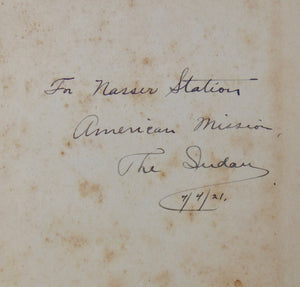 For Nasser Station
American Mission,
The Sudan
7/7/21.